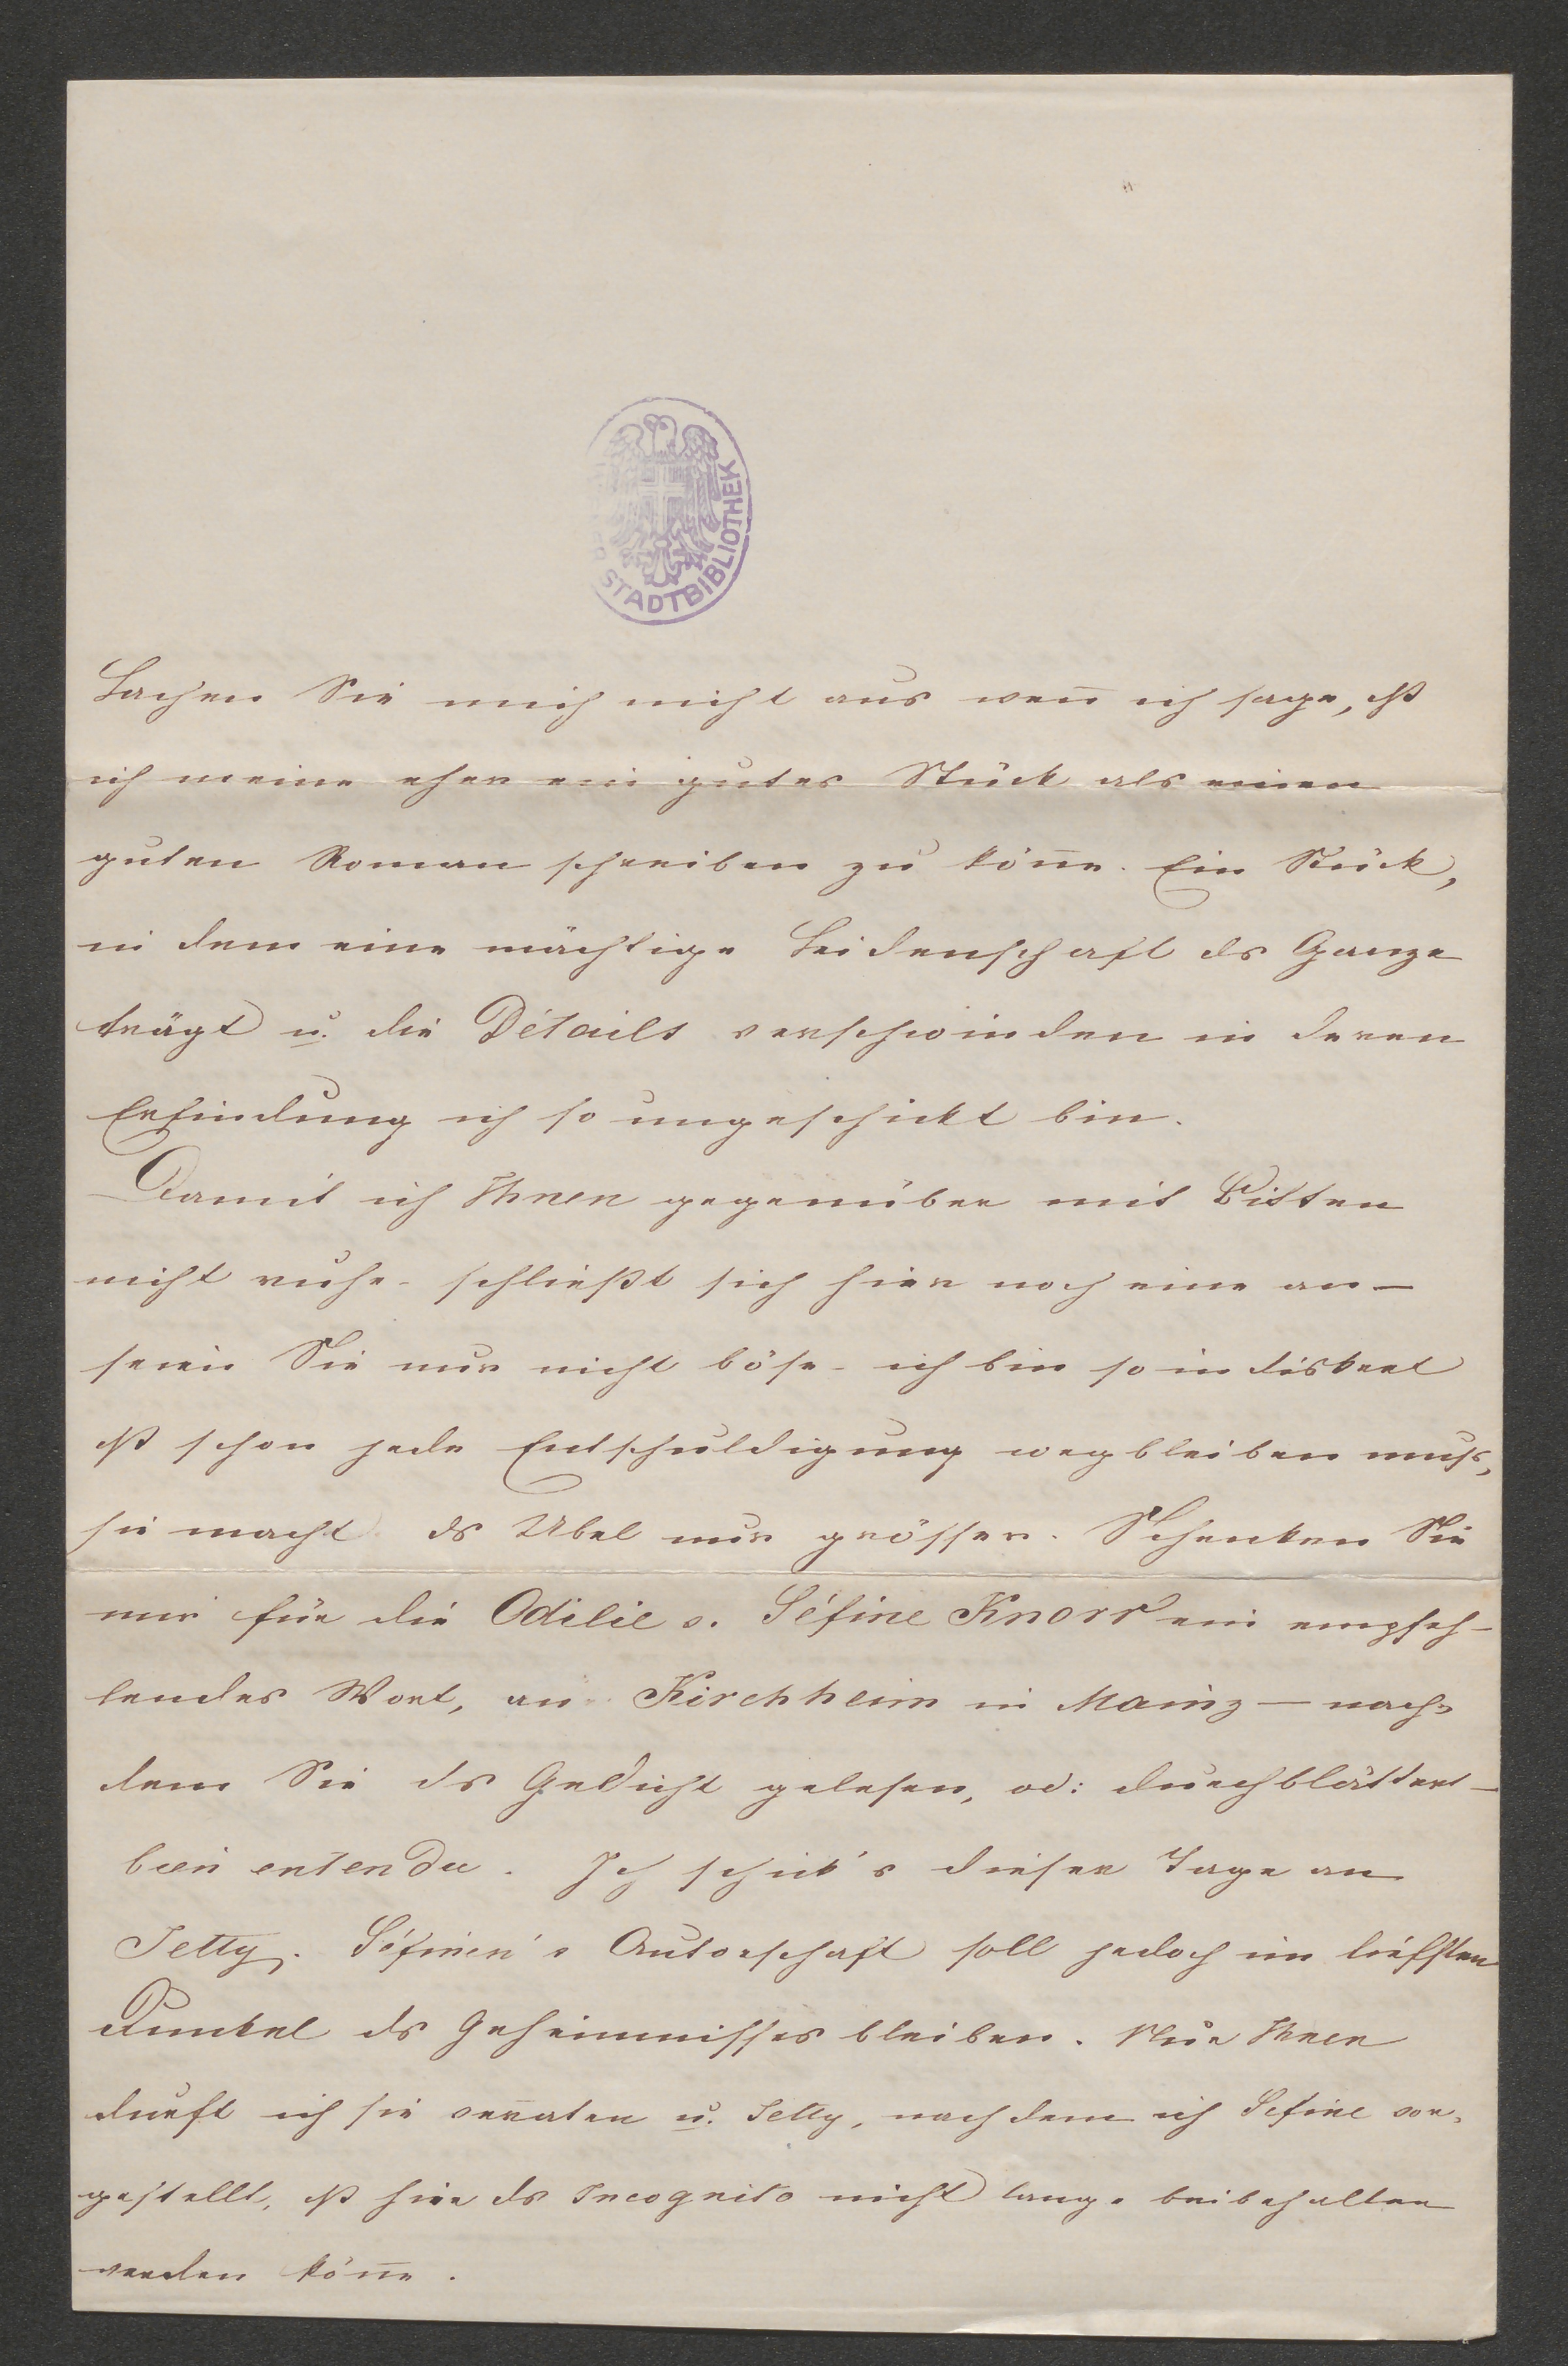 STADTBIBLIOTHEK
Lachen Sie mich nicht aus weñ ich sage, dß
ich meine eher ein gutes Stück als einen
guten Roman schreiben zu köñe. Ein Stück,
in dem eine mächtige Leidenschaft ds Ganze
trägt u. die Détails verschwinden in deren
Erfindung ich so ungeschickt bin.
Damit ich Ihnen gegenüber mit Bitten
nicht ruhe - schließt sich hier noch eine an —
seien Sie nur nicht böse - ich bin so indiskret
dß schon jede Entschuldigung wegbleiben muss,
sie macht ds Übel nur grösser. Schenken Sie
mir für die Odilie v. Séfine Knorr ein empfeh-
lendes Wort, an Kirchheim in Mainz — nach-
dem Sie ds Gedicht gelesen, od: durchblättert —
bien entendu. Ich schick's dieser Tage an
Jetty. Séfinen's Autorschaft soll jedoch im tiefsten
Dunkel ds Geheimnisses bleiben. Nur Ihnen
durft ich sie verraten u. Jetty, nachdem ich Sefine vor-
gestellt, dß hier ds Incognito nicht lange beibehalten
werden köñe.